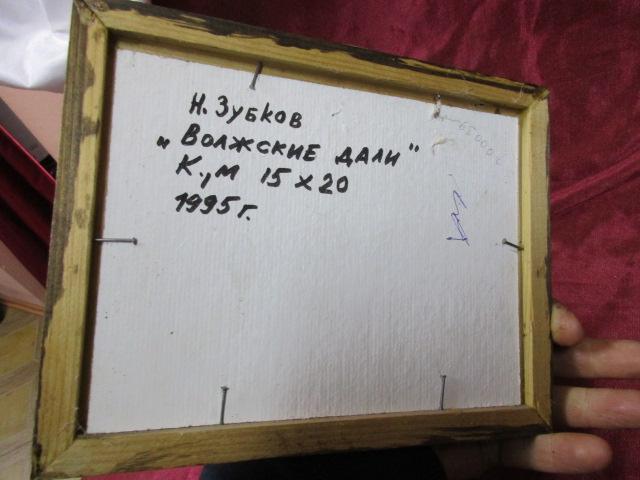 Н. Зубков
„Волжские дали"
К., м 15 х 20
1995 г.